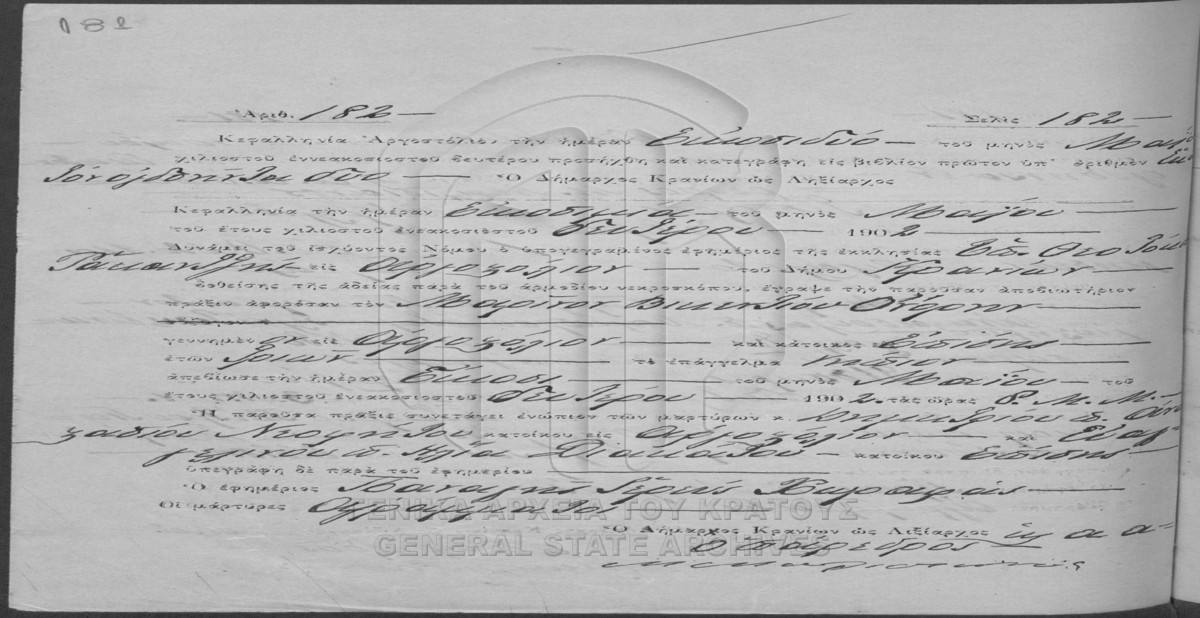 182
Ἀριθ. 182 — Σελὶς 182 —
Κεφαλληνία Ἀργοστόλιον τὴν ἡμέραν Εἰκοσιδύο — τοῦ μηνὸς
χιλιοστοῦ ἐννεακοσιοστοῦ δευτέρου προσήχθη καὶ κατεγράφη εἰς βιβλίον πρῶτον ὑπ' ἀριθμὸν
δύο — Ὁ Δήμαρχος Κρανίων ὡς Ληξίαρχος
Κεφαλληνία τὴν ἡμέραν Εἰκοσιμίας — τοῦ μηνὸς Μαΐου —
τοῦ ἔτους χιλιοστοῦ ἐνεακοσιοστοῦ δευτέρου — 1902 —
Δυνάμει τοῦ ἰσχύοντος Νόμου ὁ ὑπογεγραμένος ἐφημέριος τῆς ἐκκλησίας
εἰς Ἀργοστόλιον — τοῦ Δήμου Κρανίων —
δοθείσης τῆς ἀδείας παρὰ τοῦ ἁρμοδίου νεκροσκόπου, ἔγραψε τὴν παροῦσαν ἀποβιωτήριον
πρᾶξιν ἀφορῶσαν τὸν Μαρῖνον Βικεντίου —
γεννημέν ον εἰς Ἀργοστόλιον — καὶ κάτοικος ἐπίσης —
ἐτῶν τριῶν — τὸ ἐπάγγελμα νήπιον —
ἀπεβίωσε τὴν ἡμέραν Εἴκοσι — τοῦ μηνὸς Μαΐου — τοῦ
ἔτους χιλιοστοῦ ἐνεακοσιοστοῦ δευτέρου — 1902. τὰς ὥρας 8. Μ. Μ. —
Ἡ παροῦσα πρᾶξις συνετάγει ἐνώπιον τῶν μαρτύρων κ. Δημητρίου
κατοίκου εἰς Ἀργοστόλιον — καὶ Εὐαγ-
γελινοῦ — κατοίκου ἐπίσης —
ὑπεγράφη δὲ παρὰ τοῦ ἐφημερίου —
Ὁ ἐφημέριος Παναγῆς Ἱερεὺς —
Οἱ μάρτυρες Ἀγράμματοι
Ὁ Δήμαρχος Κρανίων ὡς Λιξίαρχος
Ὁ Πάρεδρος —
ΓΕΝΙΚΑ ΑΡΧΕΙΑ ΤΟΥ ΚΡΑΤΟΥΣ
GENERAL STATE ARCHIVES